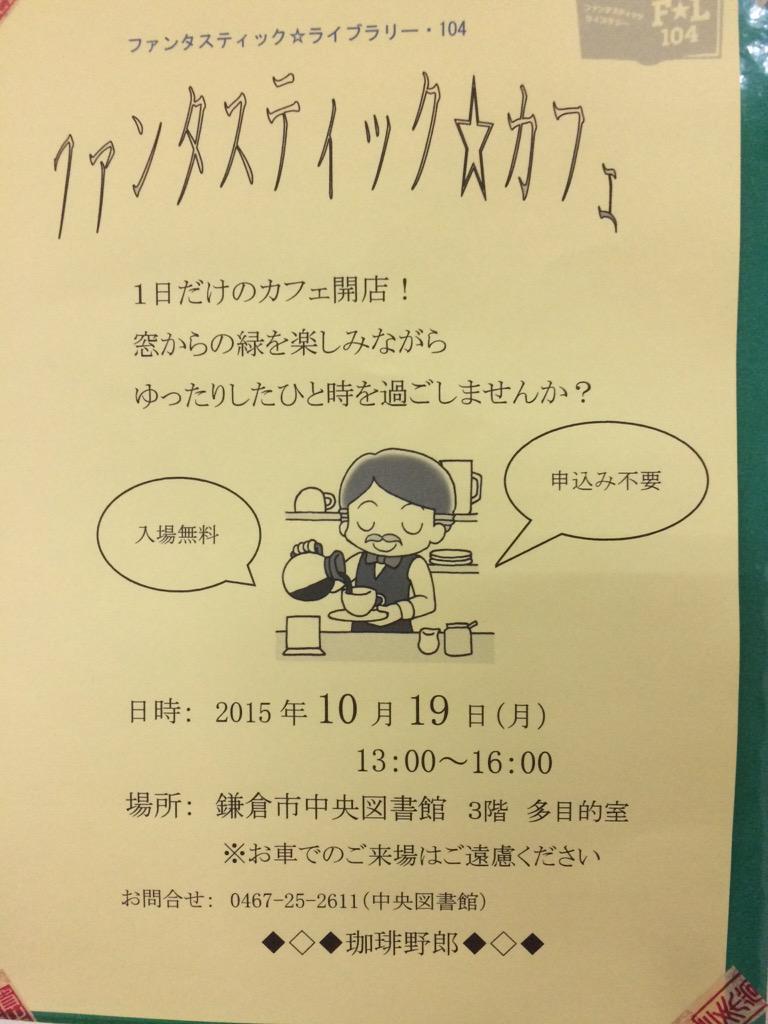 ファンタスティック☆ライブラリー・104
ファンタスティック
ライブラリー
F★L
104
ファンタスティック☆カフェ
1日だけのカフェ開店！
窓からの緑を楽しみながら
ゆったりしたひと時を過ごしませんか？
入場無料
申込み不要
日時： 2015年10月19日(月)
13:00～16:00
場所： 鎌倉市中央図書館 3階 多目的室
※お車でのご来場はご遠慮ください
お問合せ： 0467-25-2611(中央図書館)
◆◇◆珈琲野郎◆◇◆